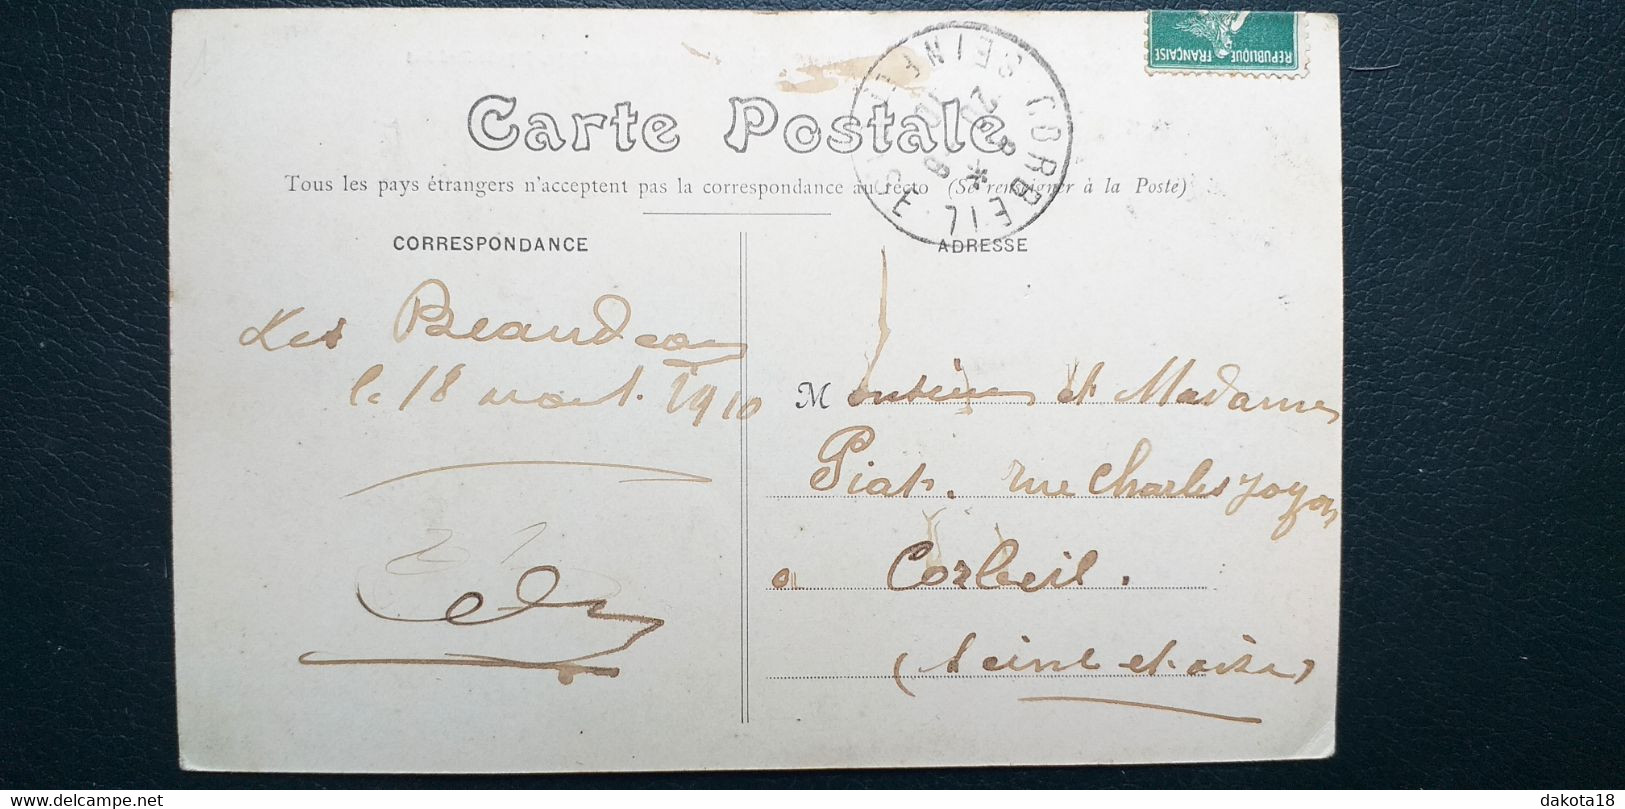 REPUBLIQUE FRANÇAISE
CORBEIL
SEINE
Carte Postale
Tous les pays étrangers n'acceptent pas la correspondance au recto (Se renseigner à la Poste)
CORRESPONDANCE
ADRESSE
Les Beaudeau
le 18 août. 1910
Monsieur et Madame
Piat. rue Charles
a Corbeil.
(Seine et oise)
dakota18